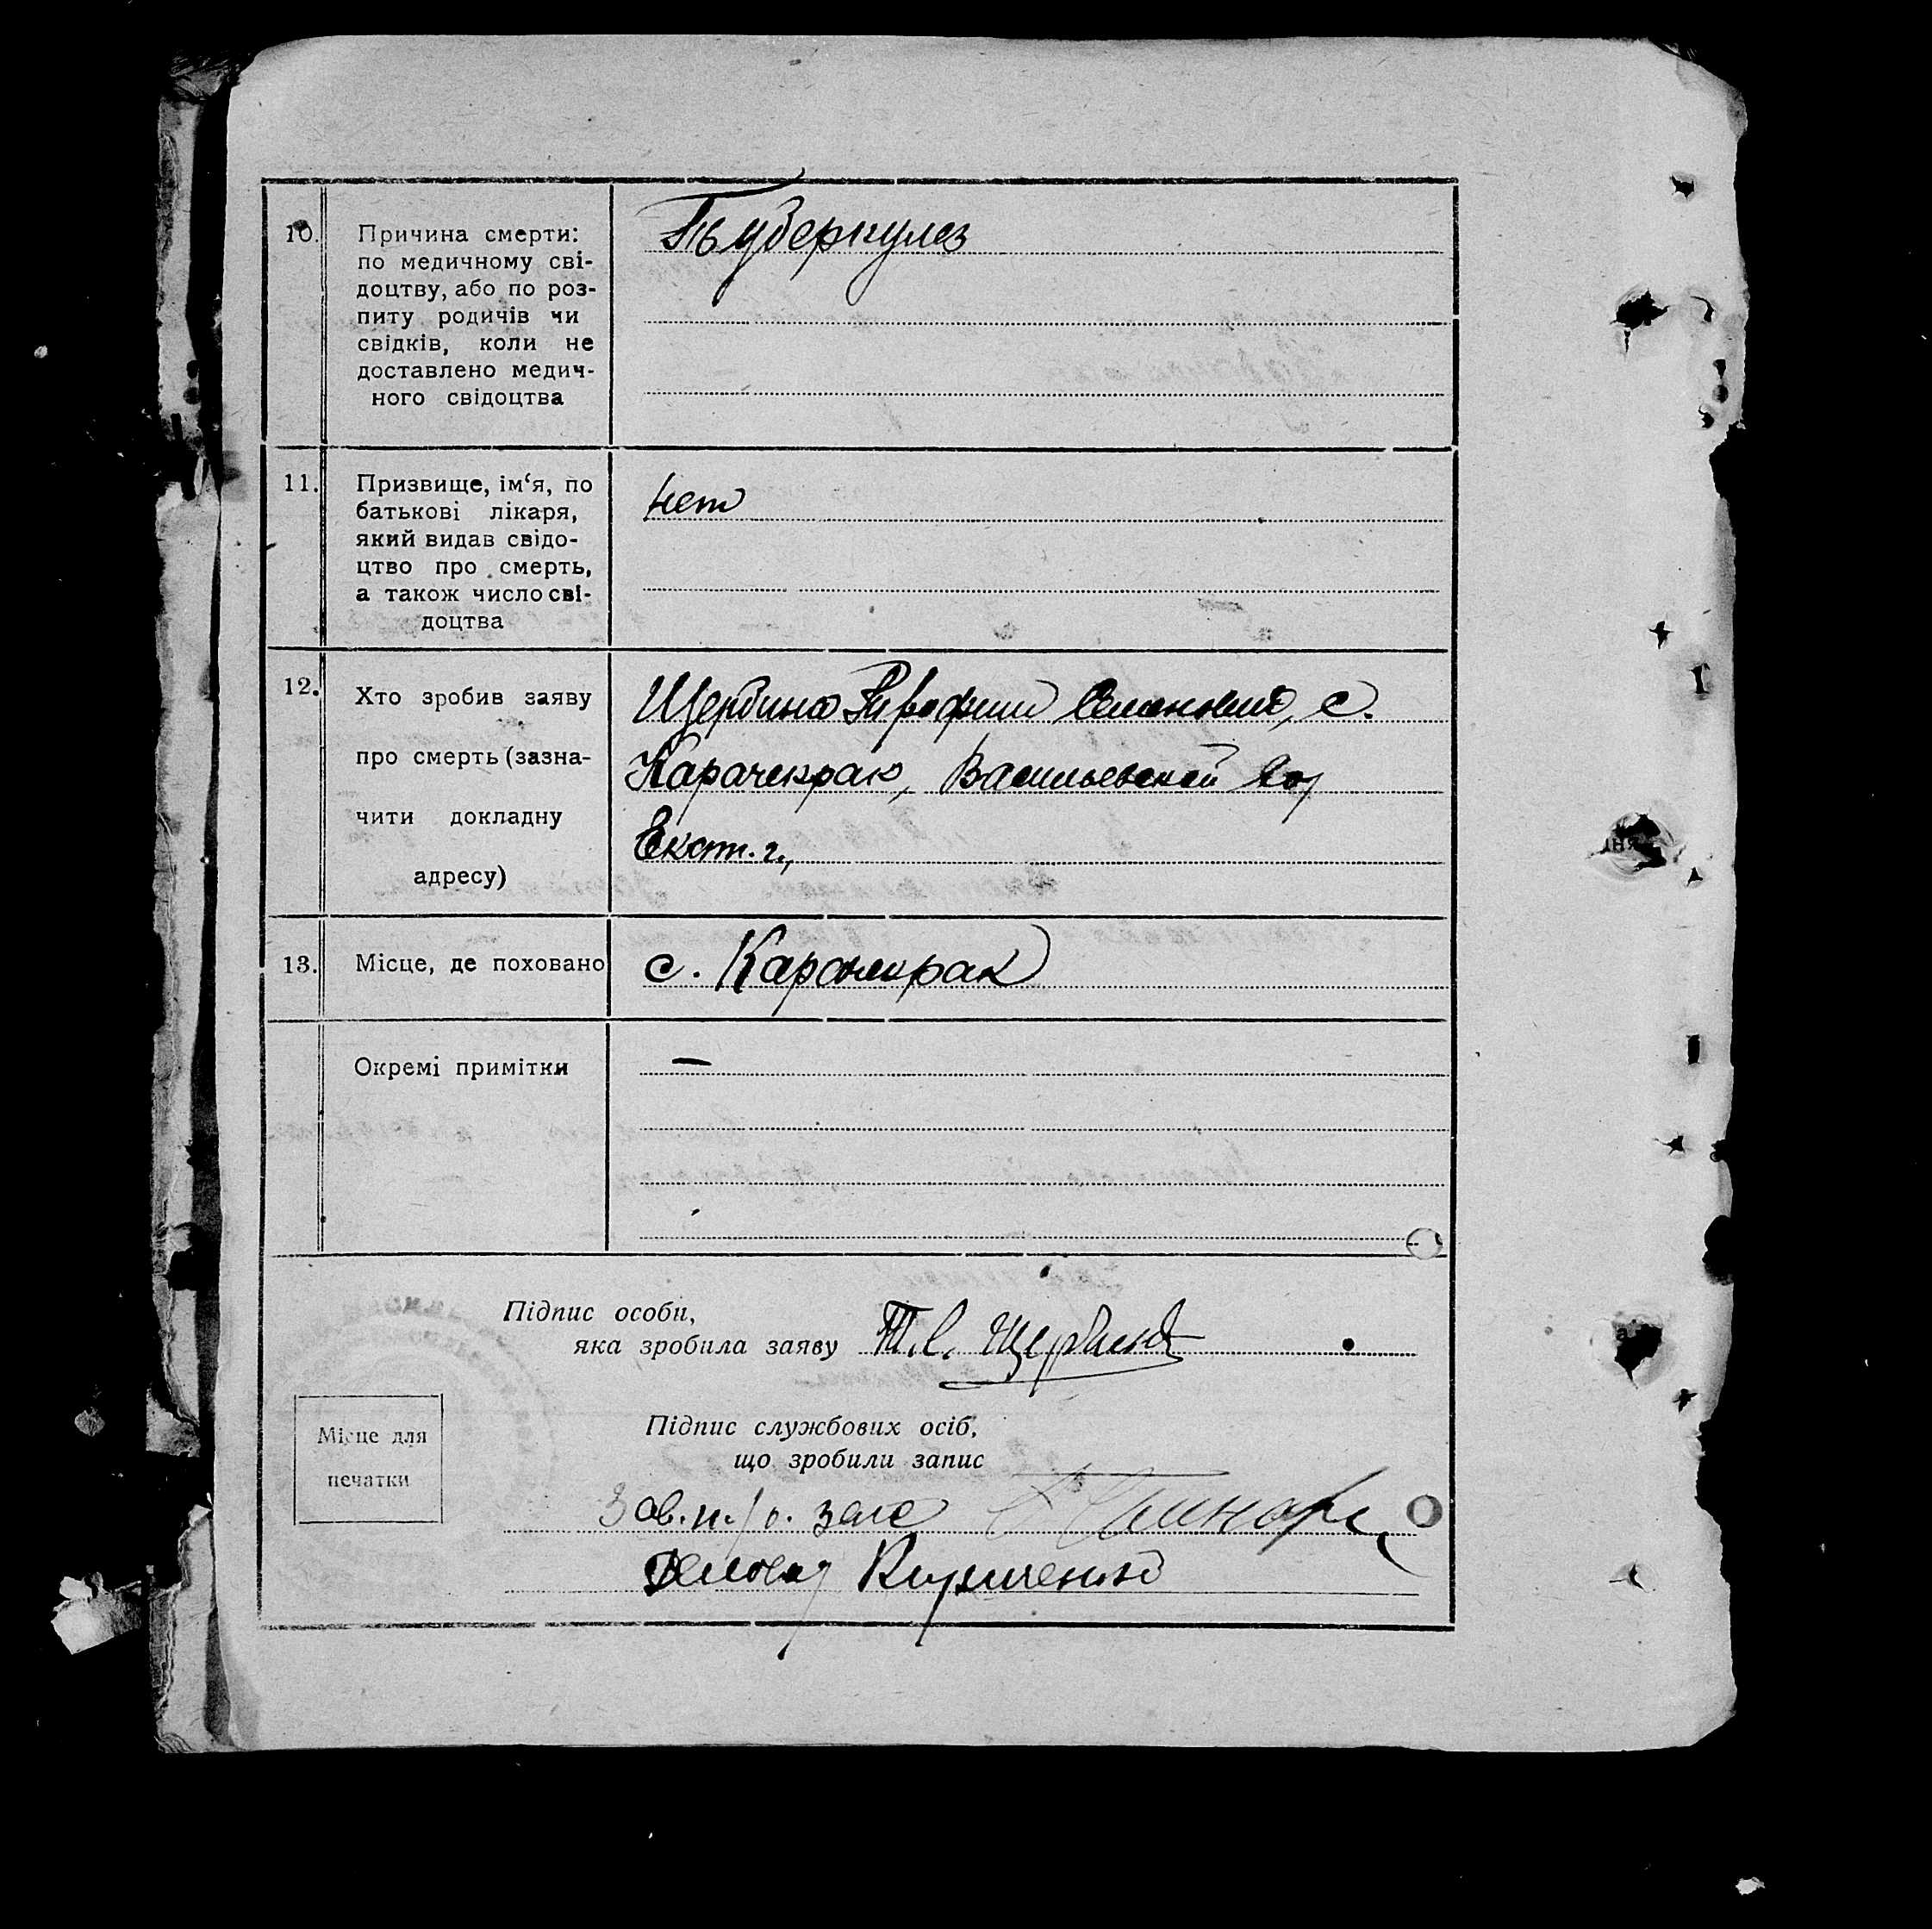 10.
Причина смерти:
по медичному сві-
доцтву, або по роз-
питу родичів чи
свідків, коли не
доставлено медич-
ного свідоцтва
Туберкулез
11.
Призвище, ім‘я, по
батькові лікаря,
який видав свідо-
цтво про смерть,
а також число сві-
доцтва
нет
12.
Хто зробив заяву
про смерть (зазна-
чити докладну
адресу)
Щербина с.
Карачекрак, Васильевской вол
Екат. г.,
13.
Місце, де поховано
с. Карачекрак
Окремі примітки
—
Підпис особи,
яка зробила заяву Т. С. Щербина
Підпис службових осіб,
що зробили запис
Місце для
печатки
Зав. п/о. загс
Деловод Кириченко